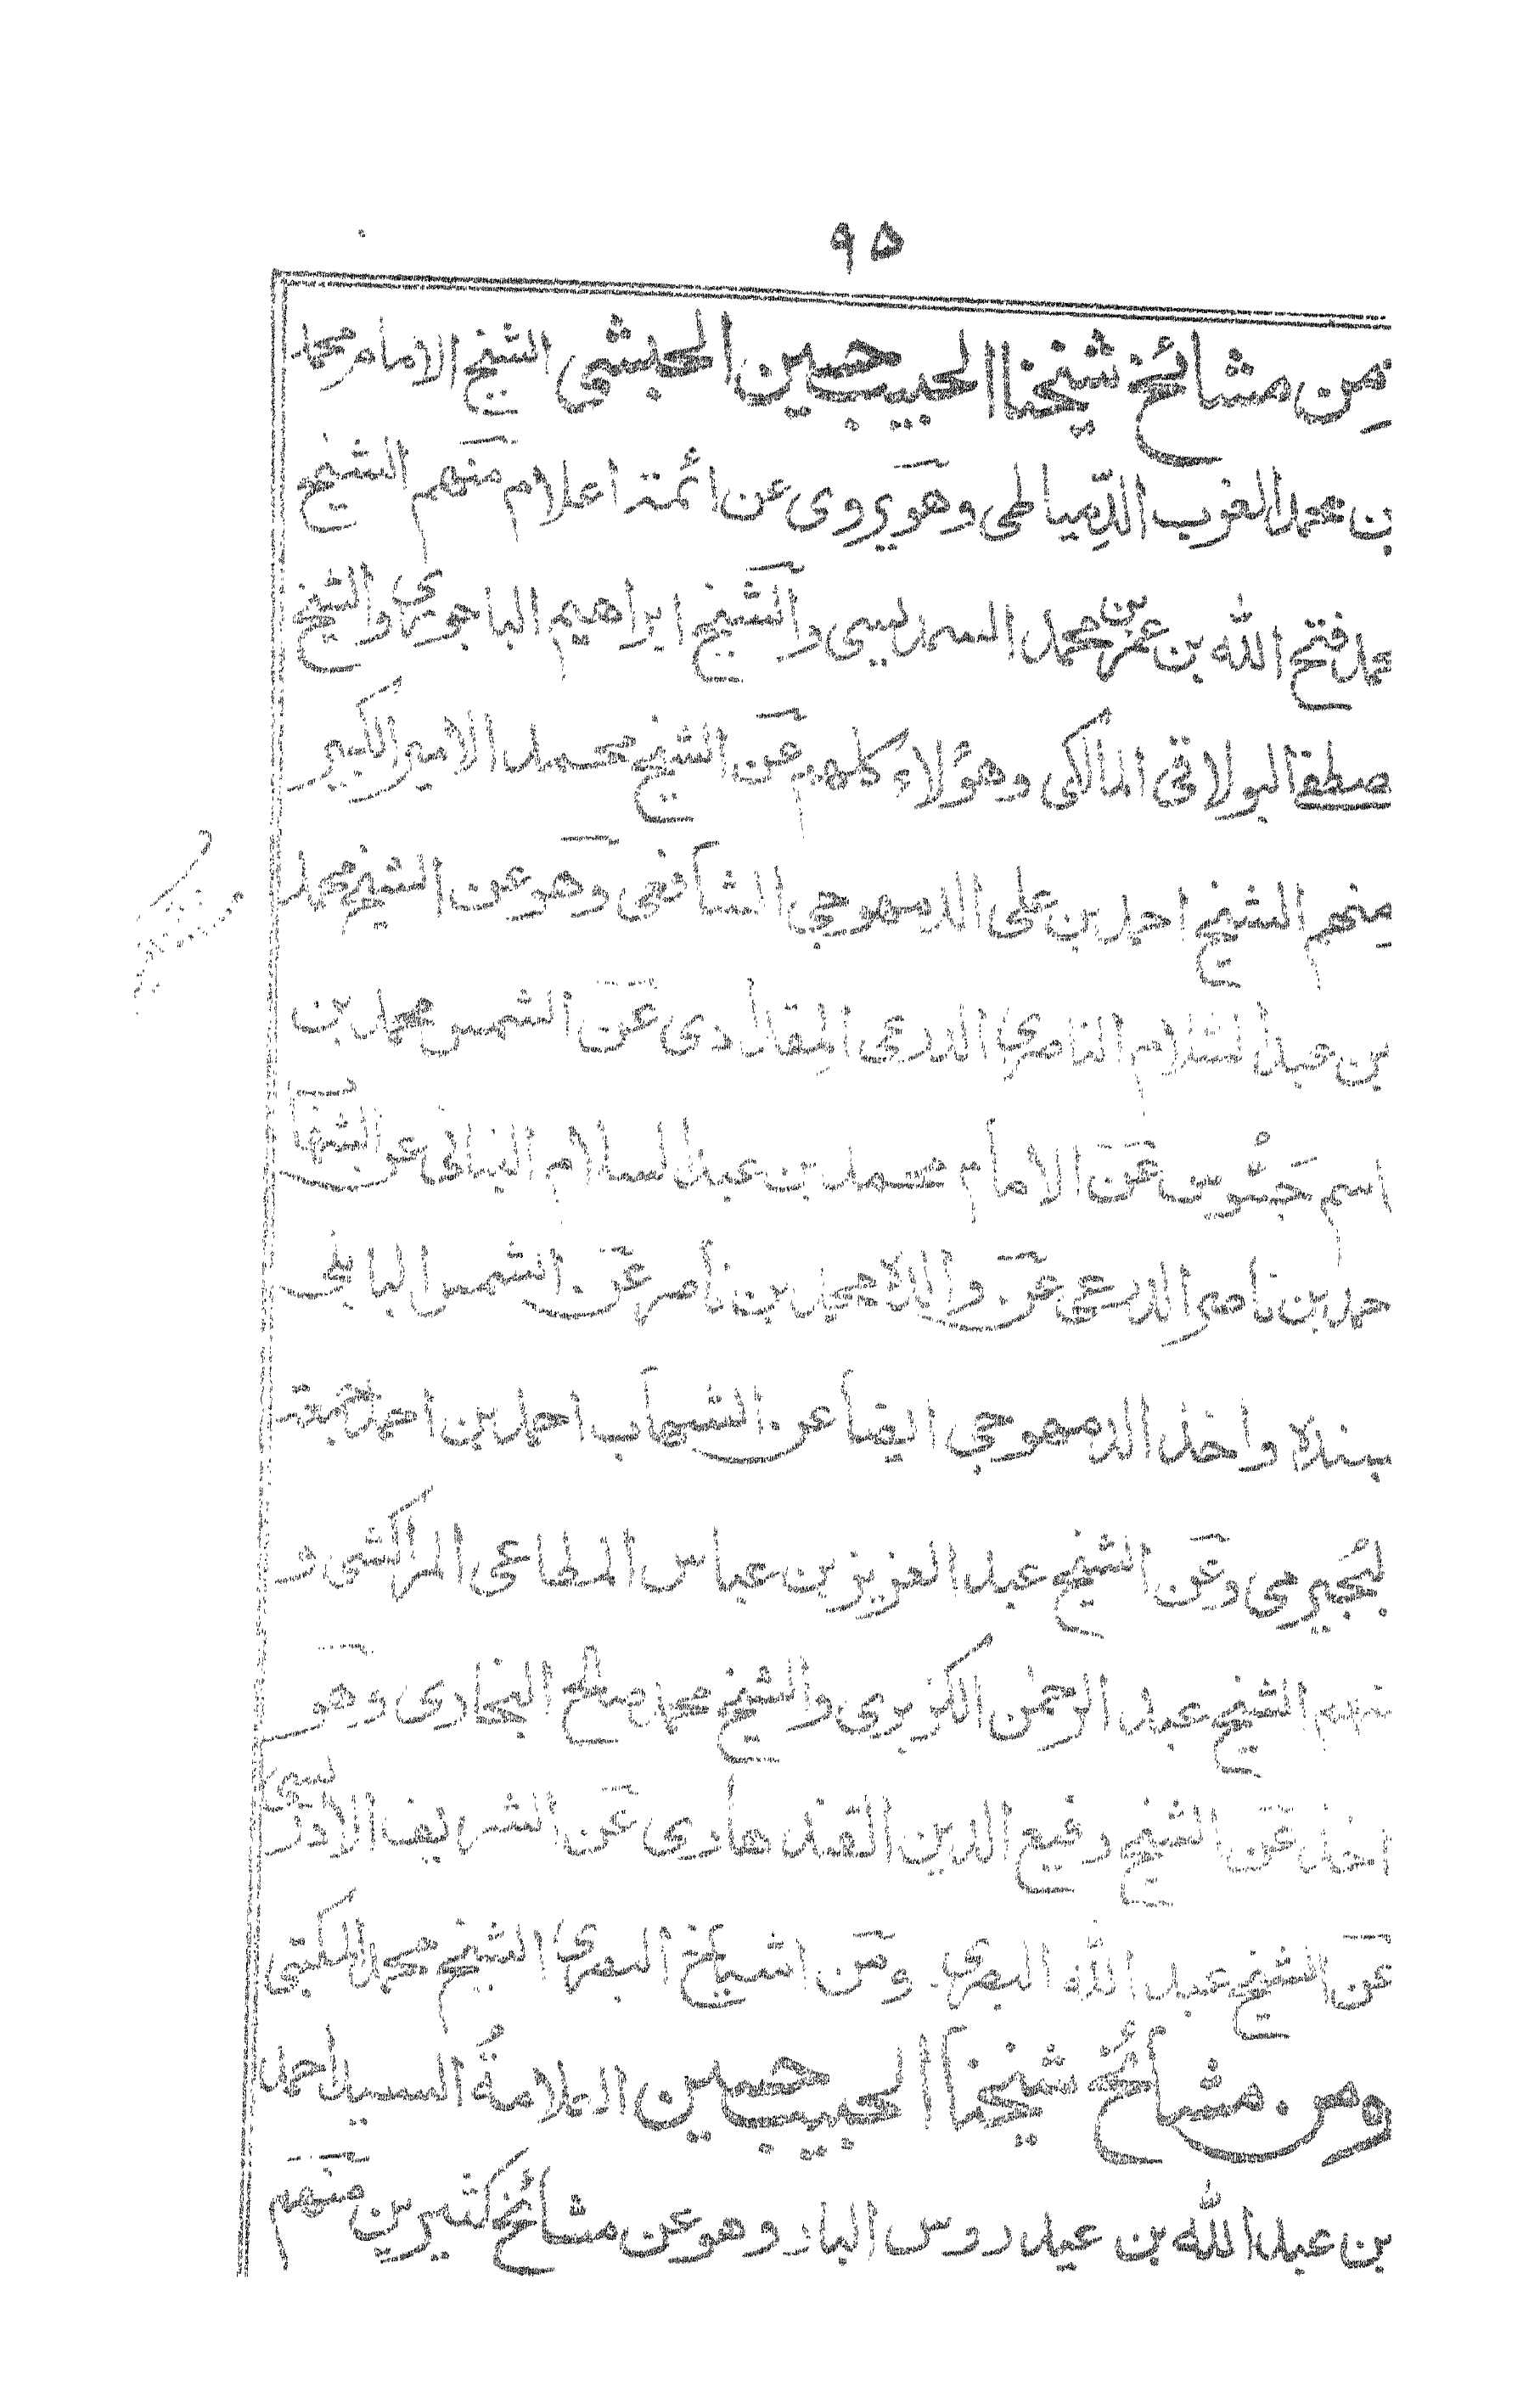 ٩٥
من مشائخ شيخنا الحبيب حسين الحبشى الشيخ الامام محمد
بن محمد العزب الدمياطى وهو يروى عن ائمة اعلام منهم الشيخ
محمد فتح الله بن عمر بن محمد السمديسى والشيخ ابراهيم الباجورى والشيخ
صطفے البولاقى المالكى وهؤلاء كلهم عن الشيخ محمد الامير الكبير
منهم الشيخ احمد بن على الدمهوجى الشافعى وهو عن الشيخ محمد
بن عبد السلام الناصرى الدرعى عن الشمس محمد بن
اسم جسوس عن الامام محمد بن عبد السلام البنانى عن الشهاب
حمد بن ناصر الدرعى عن والده محمد بن ناصر عن الشمس البابلى
بسنده واخذ الدمهوجى ايضا عن الشهاب احمد بن احمد جمعة
لبجيرمى وعن الشيخ عبد العزيز بن عباس المطاعى المراكشى و
نهم الشيخ عبد الرحمٰن الكزبرى والشيخ محمد صالح البخارى وهو
اخذ عن الشيخ رفيع الدين القندهارى عن الشريف الادريسى
عن الشيخ عبد الله البصرى ومن اشياخ البصرى الشيخ محمد المكتبى
ومن مشائخ شيخنا الحبيب حسين العلامة السيد احمد
بن عبد الله بن عيدروس البار وهو عن مشائخ كثيرين منهم